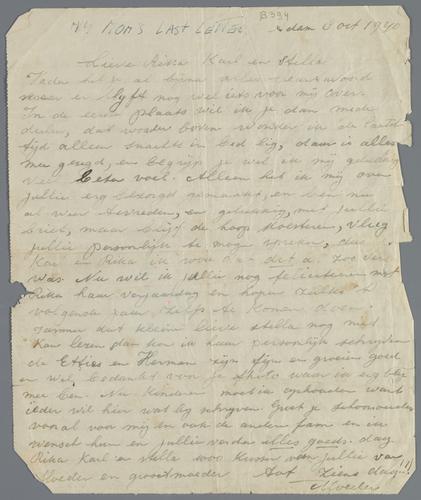 MY MOM'S LAST LETTER B394
A dam 3 oct 1940
Lieve Rika Karl en Stella
blyft nog wel iets voor mij over.
In de eerste plaats wil ik je dan mede
deelen, dat wonder boven wonder ik de laatste
tijd alleen snachts in bed lig, daar is alles
mee gezegd, en begrijp je wel ik mij gelukkig
veel beter voel. Alleen heb ik mij over
jullie erg bezorgd gemaakt, en ben nu
al weer tevreden, en gelukkig, met jullie
brief, maar blijf de hoop koesteren, vlug
jullie persoonlijk te mogen spreken, dus
Karl en Rika
was. Nu wil ik jullie nog feliciteeren met
Rika haar verjaardag en hopen zulks 't
volgende jaar zelfs te komen doen.
Jammer dat kleine lieve Stella nog niet
kan lezen dan kon ik haar persoonlijk schrijven
de Etties en Herman zijn fijn en groeien goed
en wel bedankt voor je photo waar ik erg blij
mee ben. Nu kinderen moet ik ophouden want
ieder wil hier wat bij schrijven. Groet je schoonouders
vooral voor mij en ook de andere fam en ik
wensch hun en jullie verder alles goeds. dag
Rika Karl en Stella 1000 kussen van jullie
Moeder en grootmoeder tot ziens dag!!!
Moeder